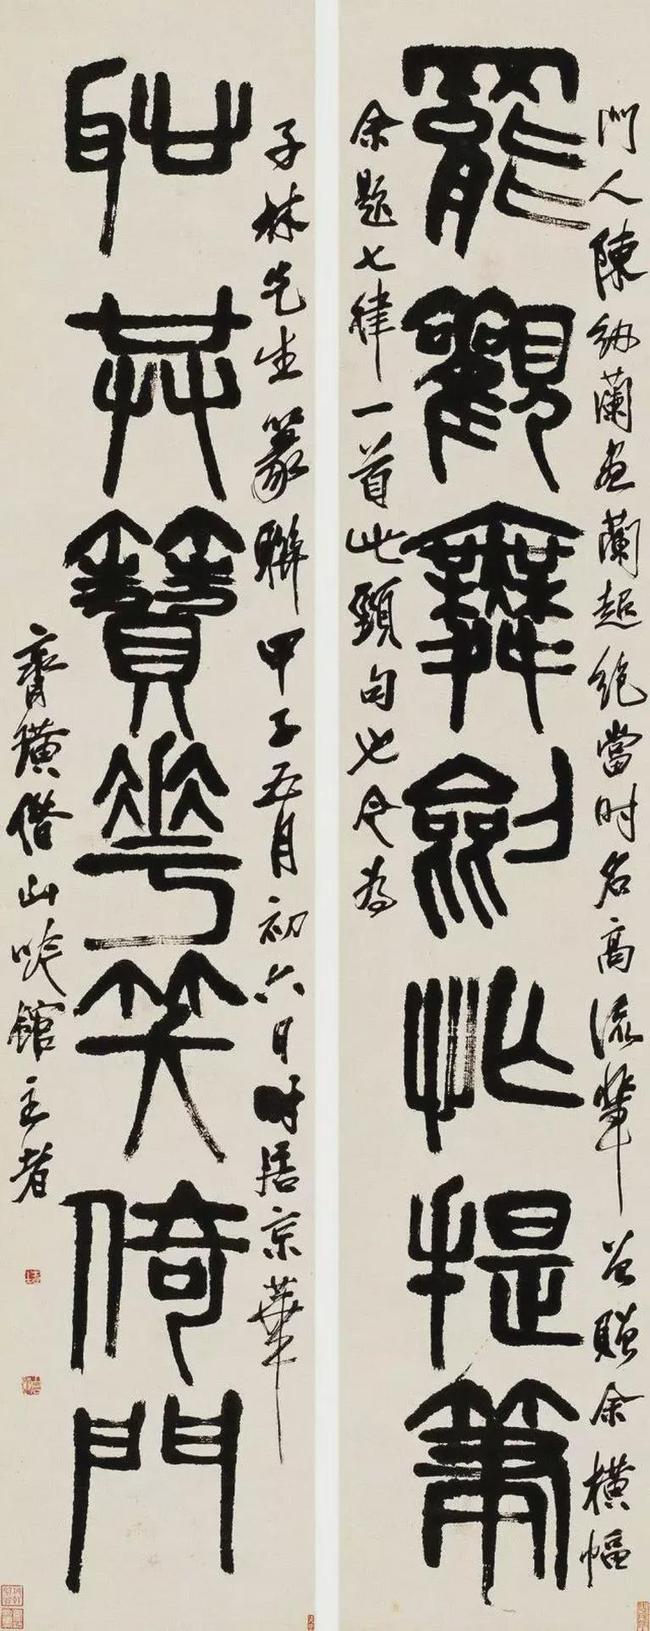 門人陳紉蘭畫蘭超絕當時名高流輩曾贈余橫幅
罷觀舞劍忙提筆
余題七律一首此頸句也今為
子林先生篆聯甲子五月初六日時居京華
耻共簪花笑倚門
齊璜借山吟館主者